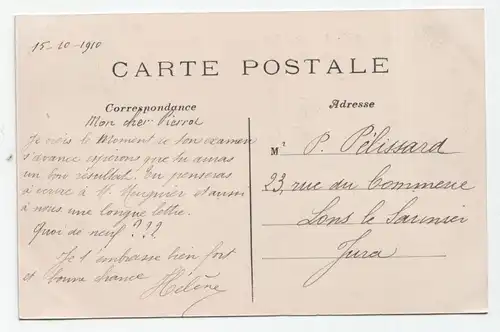 15-10-1910
CARTE POSTALE
Correspondance
Mon cher Pierrot
Je crois le moment de ton examen
s'avance espérons que tu auras
un bon résultat. Tu penseras
à écrire à V. et aussi
à nous une longue lettre.
Quoi de neuf ???
Je t'embrasse bien fort
et bonne chance
Hélène
Adresse
Mr P. Pélissard
23, rue du Commerce
Lons le Saunier
Jura